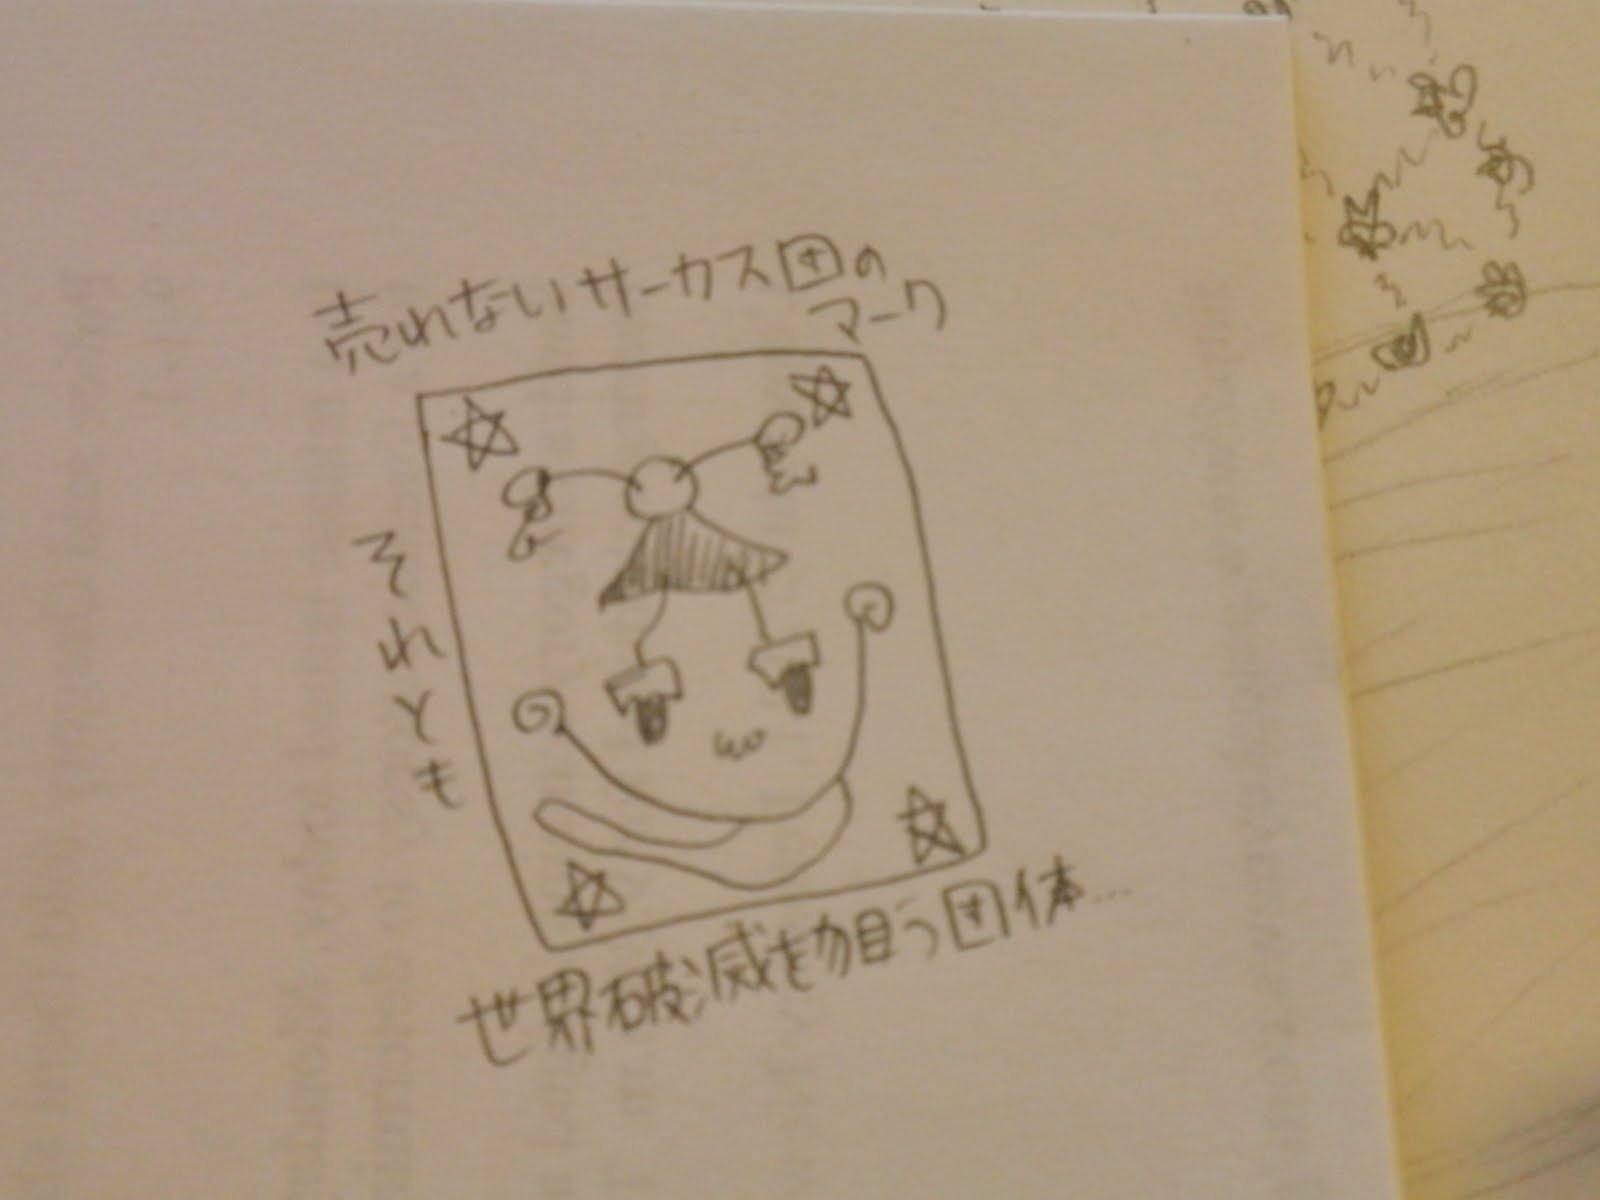 売れないサーカス団の
マーク
それとも
世界破滅を狙う団体…